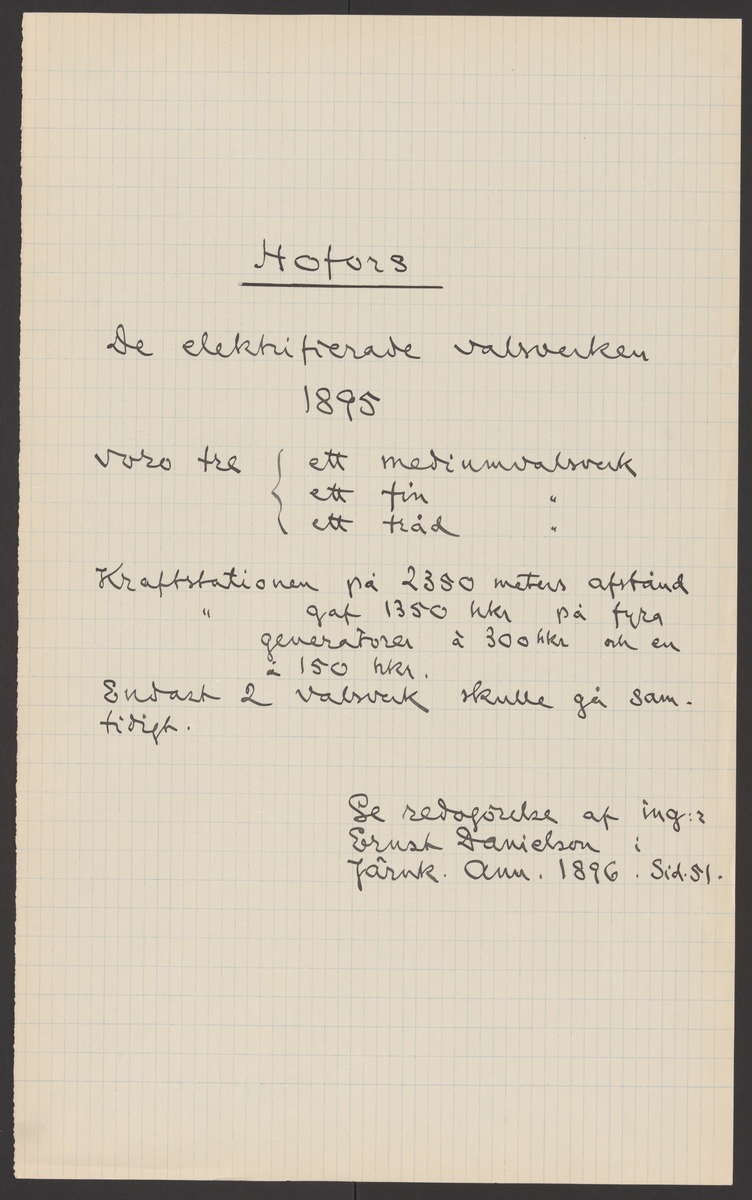 Hofors
De elektrifierade valsverken
1895
voro tre { ett mediumvalsverk
ett fin "
ett tråd "
Kraftstationen på 2350 meters afstånd
" gaf 1350 hkr på fyra
generatorer à 300 hkr och en
à 150 hkr.
Endast 2 valsverk skulle gå sam-
tidigt.
Se redogörelse af ing:r
Ernst Danielson i
Järnk. Ann. 1896. Sid. 51.